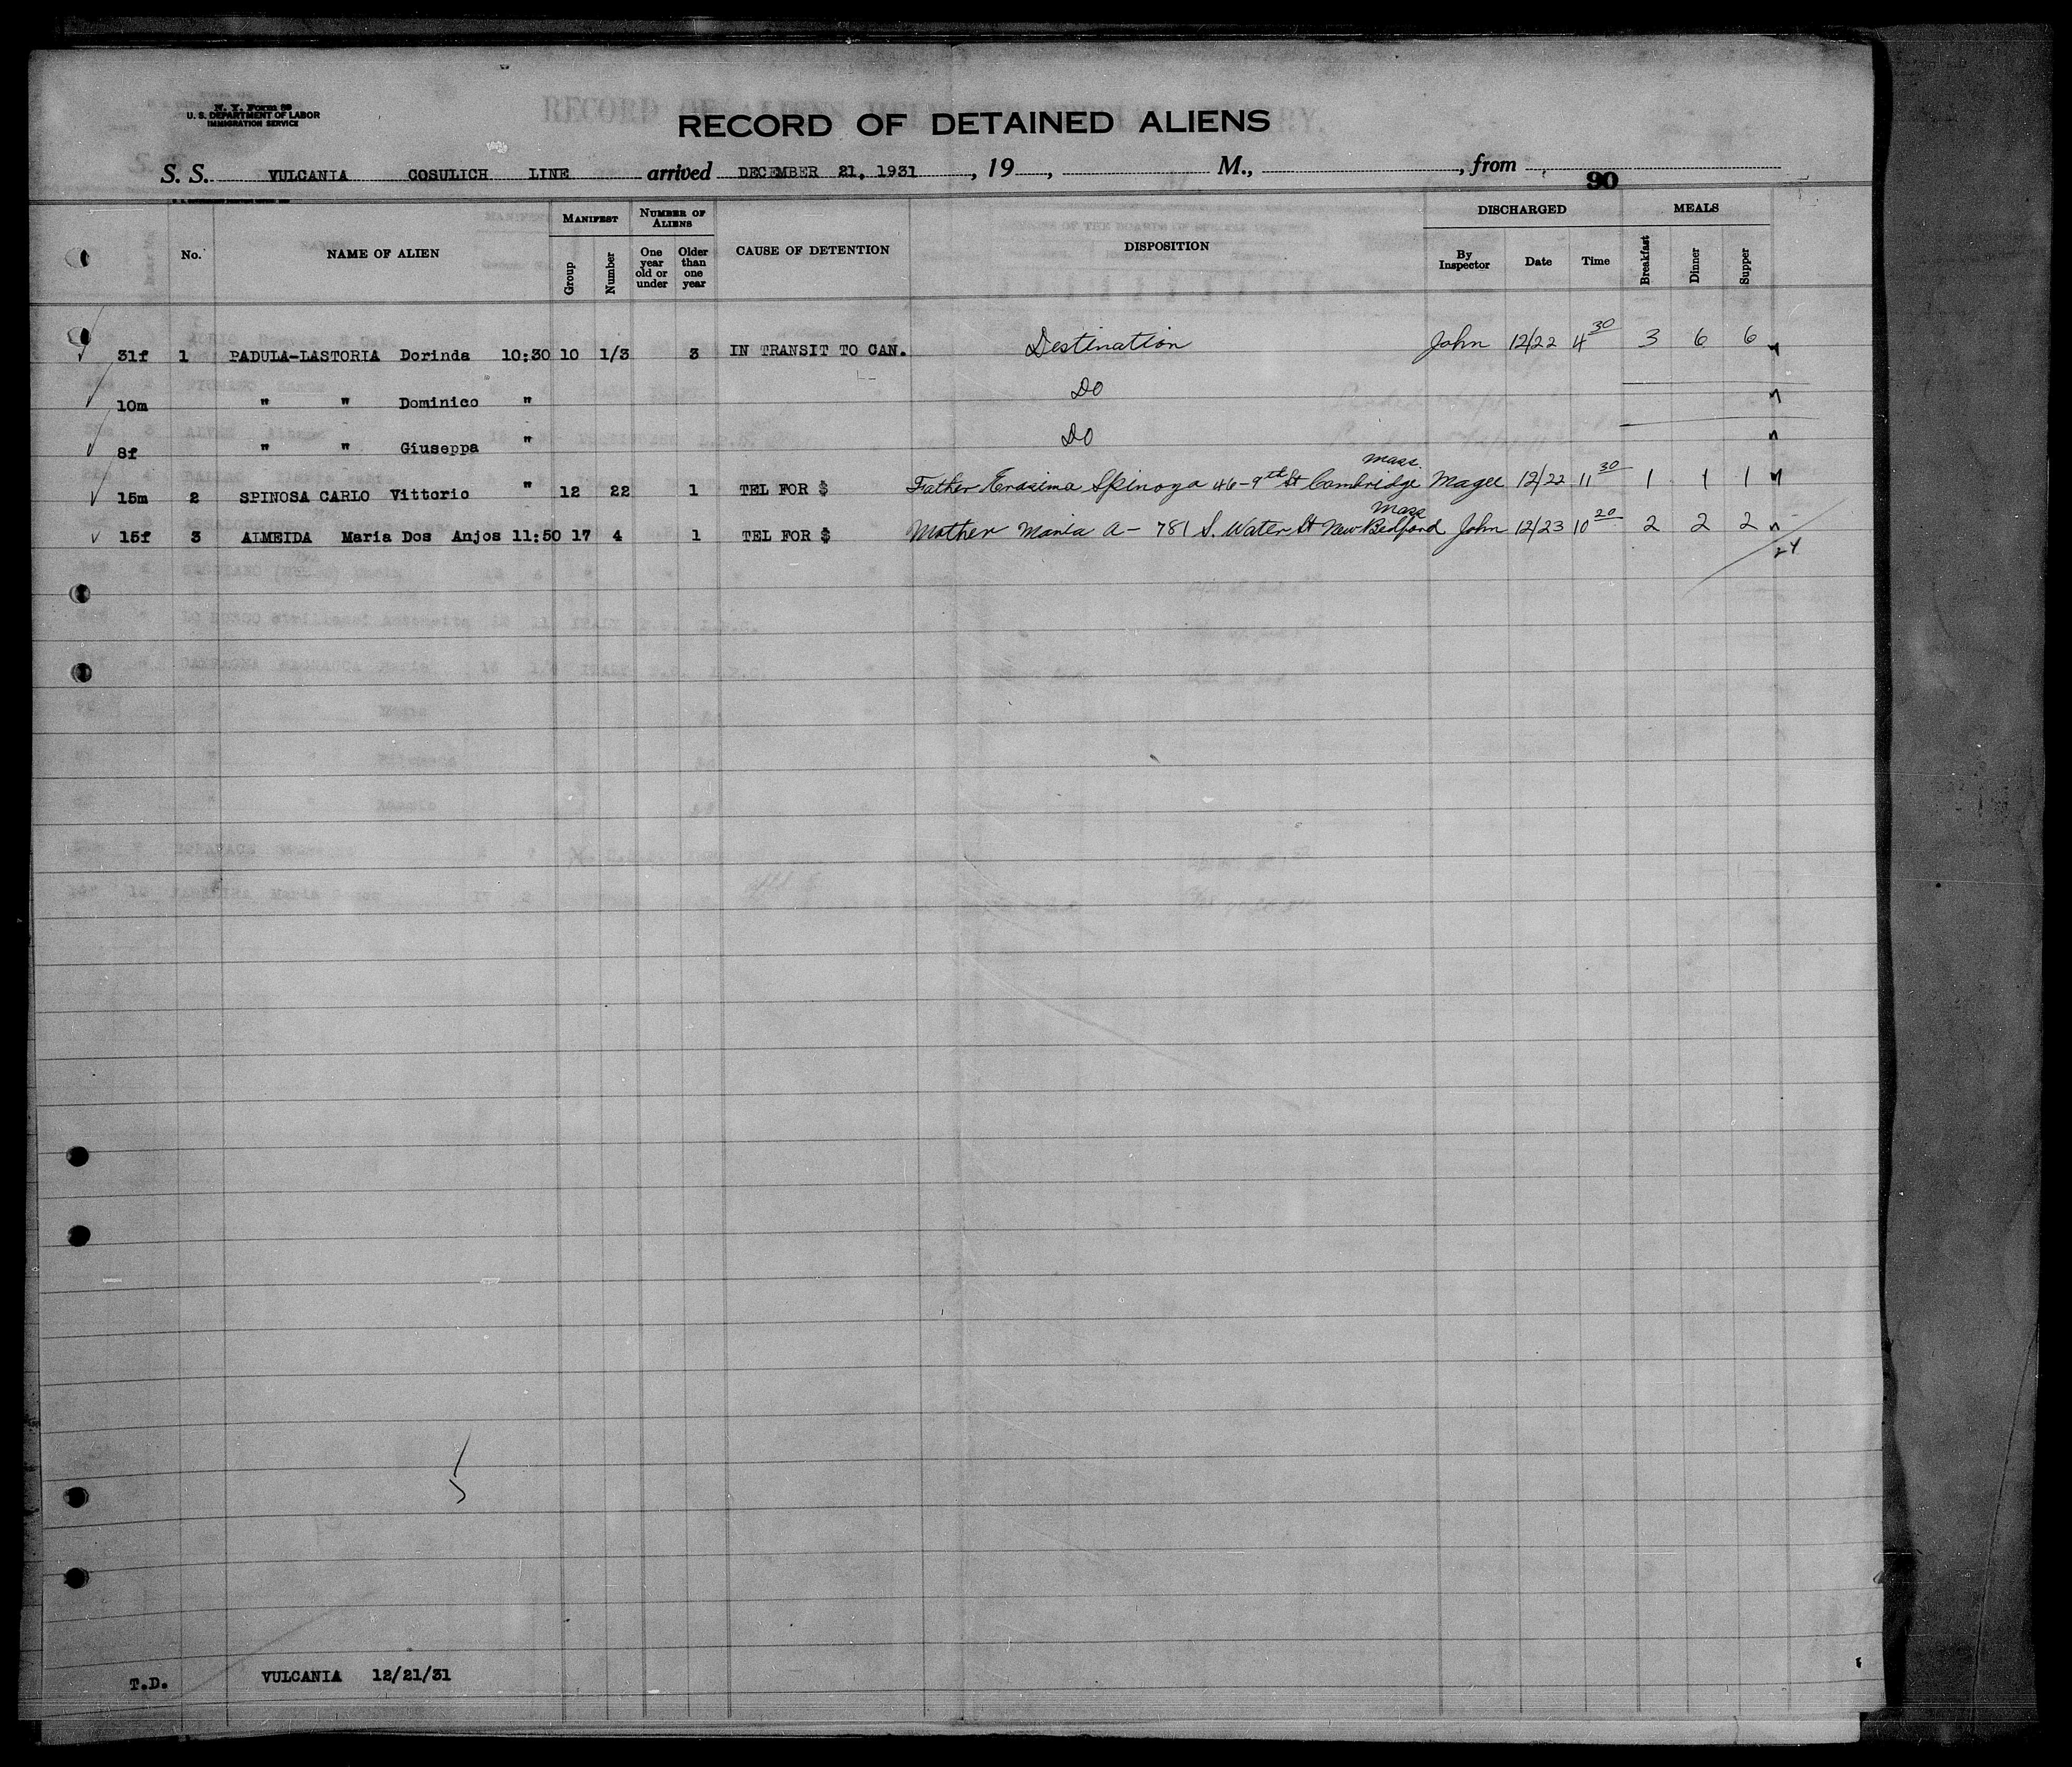 N. Y. Form 89
U. S. DEPARTMENT OF LABOR
IMMIGRATION SERVICE
RECORD OF DETAINED ALIENS
S. S. VULCANIA COSULICH LINE arrived DECEMBER 21, 1931, 19, M., , from
90
No. NAME OF ALIEN MANIFEST Group Number NUMBER OF ALIENS One year old or under Older than one year CAUSE OF DETENTION DISPOSITION DISCHARGED By Inspector Date Time MEALS Breakfast Dinner Supper
31f 1 PADULA-LASTORIA Dorinda 10:30 10 1/3 3 IN TRANSIT TO CAN. Destination John 12/22 4 30 3 6 6
10m " " Dominico " DO
8f " " Giuseppa " DO
Mass.
15m 2 SPINOSA CARLO Vittorio " 12 22 1 TEL FOR $ Father Erasima Spinoza 46-9th St Cambridge Magee 12/22 11 30 1 1 1
Mass
15f 3 ALMEIDA Maria Dos Anjos 11:50 17 4 1 TEL FOR $ Mother Maria A - 781 S. Water St New Bedford John 12/23 10 20 2 2 2
T.D. VULCANIA 12/21/31